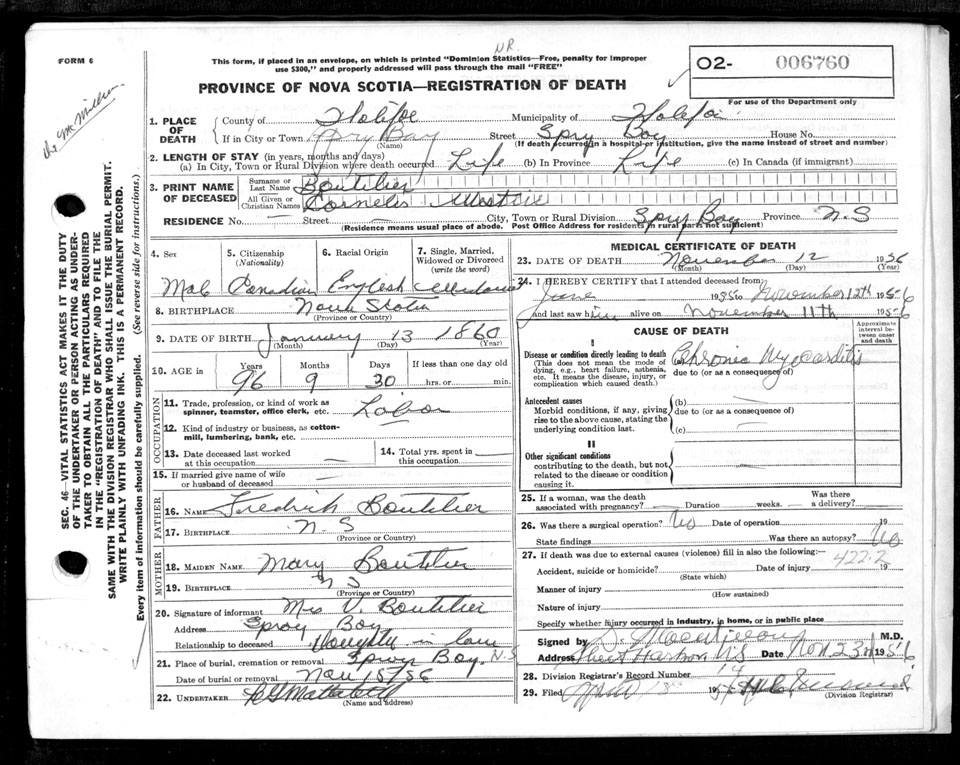 NR.
FORM 6
This form, if placed in an envelope, on which is printed "Dominion Statistics—Free, penalty for improper
use $300," and properly addressed will pass through the mail "FREE"
O2- 006760
PROVINCE OF NOVA SCOTIA—REGISTRATION OF DEATH
For use of the Department only
1. PLACE OF DEATH
County of
Municipality of
If in City or Town Spry Bay Street Spry Bay House No.
(Name) (If death occurred in a hospital or institution, give the name instead of street and number)
2. LENGTH OF STAY (in years, months and days)
(a) In City, Town or Rural Division where death occurred Life (b) In Province Life (c) In Canada (if immigrant)
3. PRINT NAME OF DECEASED
Surname or Last Name Boutilier
All Given or Christian Names
RESIDENCE No. — Street — City, Town or Rural Division Spry Bay Province N.S
(Residence means usual place of abode. Post Office Address for residents in rural parts not sufficient)
4. Sex 5. Citizenship (Nationality) 6. Racial Origin 7. Single, Married, Widowed or Divorced (write the word)
Canadian English
8. BIRTHPLACE Nova Scotia
(Province or Country)
9. DATE OF BIRTH January 13 1860
(Month) (Day) (Year)
10. AGE in Years Months Days If less than one day old
96 9 30 hrs. or min.
OCCUPATION
11. Trade, profession, or kind of work as
spinner, teamster, office clerk, etc.
12. Kind of industry or business, as cotton-
mill, lumbering, bank, etc.
13. Date deceased last worked
at this occupation —
14. Total yrs. spent in
this occupation
15. If married give name of wife
or husband of deceased —
FATHER
16. NAME Boutilier
17. BIRTHPLACE N S
(Province or Country)
MOTHER
18. MAIDEN NAME Mary Boutilier
19. BIRTHPLACE N S
(Province or Country)
20. Signature of informant Mrs V. Boutilier
Address Spry Bay
Relationship to deceased in law
21. Place of burial, cremation or removal Spry Bay N.S
Date of burial or removal Nov 15/56
22. UNDERTAKER
(Name and address)
MEDICAL CERTIFICATE OF DEATH
23. DATE OF DEATH November 12 1956
(Month) (Day) (Year)
24. I HEREBY CERTIFY that I attended deceased from
June 1955 to November 12th 1956
and last saw him alive on November 11th 1956
CAUSE OF DEATH
Approximate interval between onset and death
I
Disease or condition directly leading to death
(This does not mean the mode of
dying, e.g., heart failure, asthenia,
etc. It means the disease, injury, or
complication which caused death.)
Chronic Myocarditis
due to (or as a consequence of)
Antecedent causes
Morbid conditions, if any, giving
rise to the above cause, stating the
underlying condition last.
(b) —
due to (or as a consequence of)
(c) —
II
Other significant conditions
contributing to the death, but not
related to the disease or condition
causing it.
—
25. If a woman, was the death
associated with pregnancy? Duration weeks. Was there
a delivery?
26. Was there a surgical operation? No Date of operation 19
State findings Was there an autopsy? No
27. If death was due to external causes (violence) fill in also the following:—
422.2
Accident, suicide or homicide? Date of injury 19
(State which)
Manner of injury
(How sustained)
Nature of injury
Specify whether injury occurred in industry, in home, or in public place
Signed by M.D.
Address Sheet Harbour N.S Date Nov. 23rd 1956
28. Division Registrar's Record Number
29. Filed 19
(Division Registrar)
SEC. 46—VITAL STATISTICS ACT MAKES IT THE DUTY
OF THE UNDERTAKER OR PERSON ACTING AS UNDER-
TAKER TO OBTAIN ALL THE PARTICULARS REQUIRED
IN THE "REGISTRATION OF DEATH" AND TO FILE THE
SAME WITH THE DIVISION REGISTRAR WHO SHALL ISSUE THE BURIAL PERMIT.
WRITE PLAINLY WITH UNFADING INK. THIS IS A PERMANENT RECORD.
Every item of information should be carefully supplied. (See reverse side for instructions.)